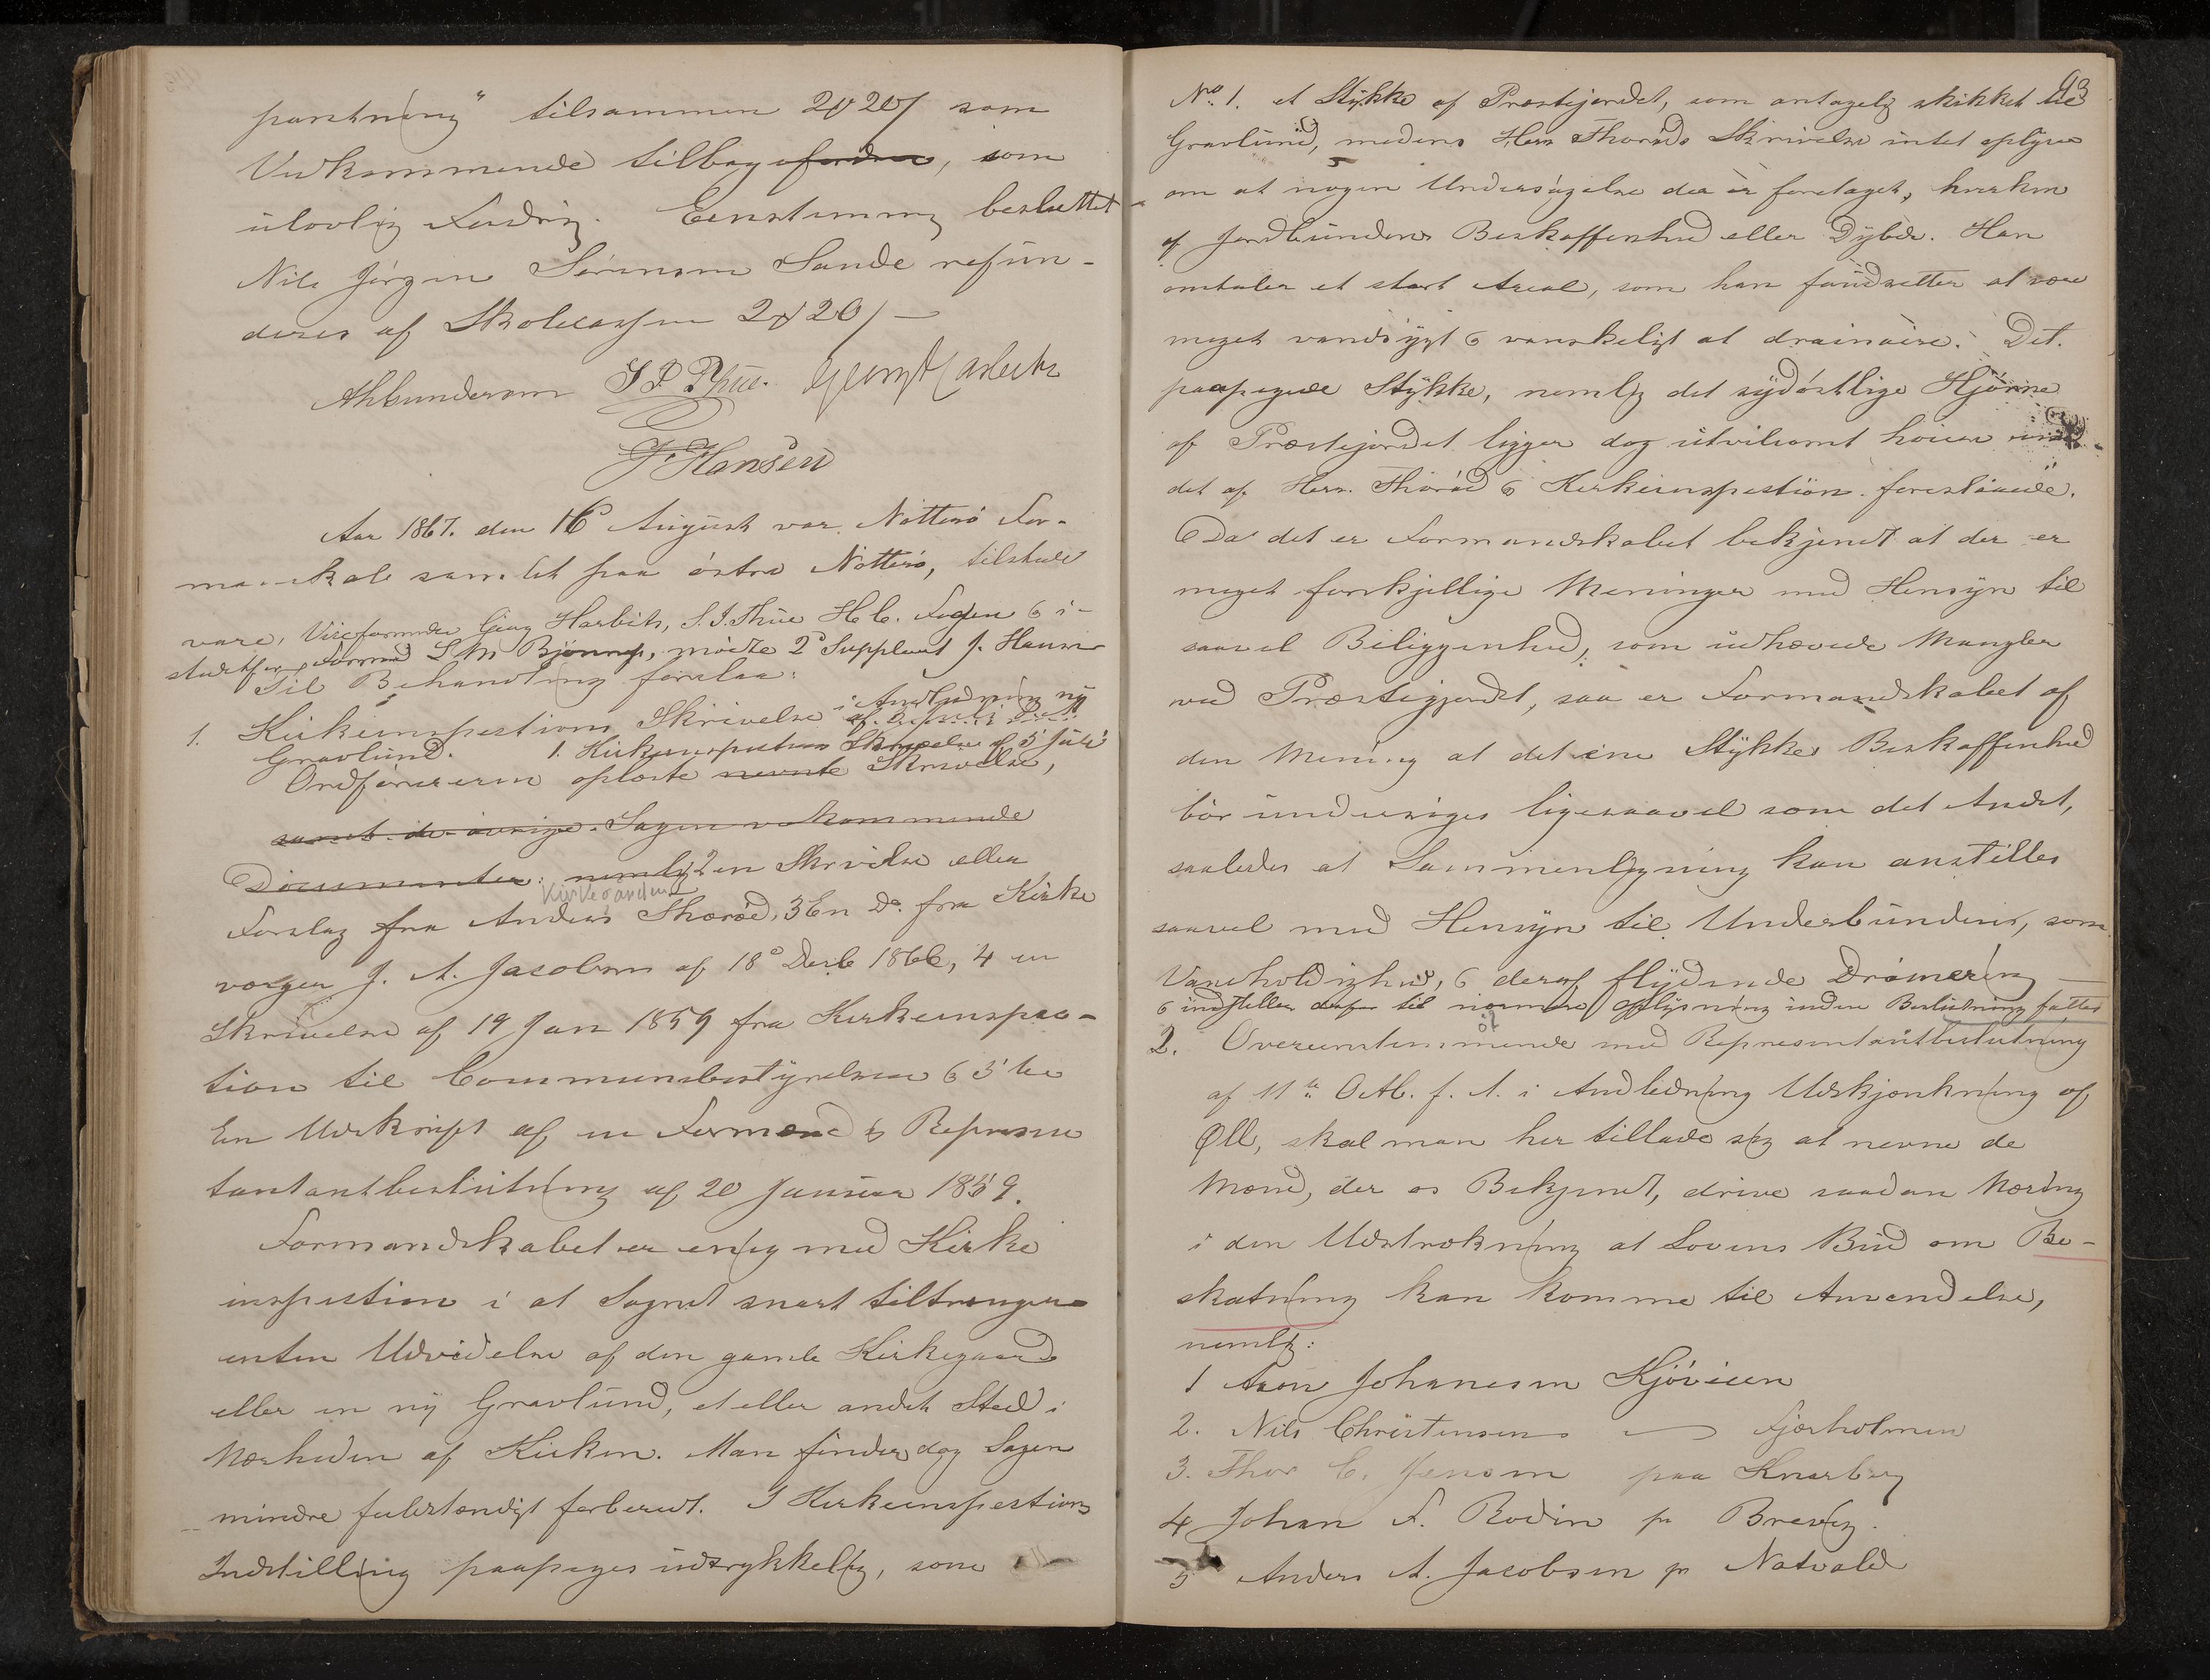 tilsammen 2 20 som
Vedkommende, som
ulovlig. Eenstemmig besluttet
Nils Jörgen Sörensen Sande refun-
deres af Skolecassen 2 20
Ahbundersen
J. Hansen
Aar 1867. den 16 August var Nötterö For-
mandskab samlet paa östre Nötterö, tilstede
vare, Viseformand Georg Harbitz, S. J. Thue H. C. Fogen & i
stedetfor Formand Bjönnes, mödte 2 Suppleant J. Hansen
Til Behandling forelaa:
1. Kirkeinspections Skrivelse i Andledning ny
Gravlund. 1. Kirkeinspections Skrivelse af 5 Juli
Ordföreren oplæste nævnte Skrivelse,
samt de övrige Sagen vedkommende
Documenter: nemlig 2 en Skrivelse eller
Kirkesangeren
Forslag fra Anders Thoröd, 3 En Do. fra Kirke
værgen J. A. Jacobsen af 18 Decb 1866, 4 en
Skrivelse af 19 Jan 1859 fra Kirkeinspec-
tion til Communebestyrelsen & 5te
En Udskrift af en Formænd & Represen
tantantbeslutning af 20 Januar 1859.
Formandskabet er enig med Kirke
inspection i at Sognet snart tiltrænger
enten Udvidelse af den gamle Kirkegaard
eller en ny Gravlund, et eller andet Sted i
Nærheden af Kirken. Man finder dog Sagen
mindre fuldstændigt forberedt. I Kirkeinspections
Indstilling paapeges udtrykkelig, som
93
No. 1. et Stykke af Præstejordet, som antagelig skikket til
Gravlund, medens Herr Thoröds Skrivelse intet oplyser
om at nogen Undersögelse der er foretaget, hverken
af Jordbundens Beskaffenhed eller Dybde. Han
omtaler et stort Areal, som han forudsetter at være
meget vandsygt & vanskeligt at drainere. Det
paapegede Stykke, nemlig det sydöstlige Hjörne
af Præstejordet ligger dog utvilsomt höiere end
det af Herr. Thoröd & Kirkeinspection foreslaaede.
Da det er Formandskabet bekjendt at der er
meget forskjellige Meninger med Hensyn til
saavel Beliggenhed, som udhævede Mangler
ved Præstegjordet, saa er Formandskabet af
den Mening at det ene Stykkes Beskaffenhed
bör undersöges ligesaavel som det Andet,
saaledes at Sammenligning kan anstilles
saavel med Hensyn til Underbunden, som
Vandholdighed, & deraf flydende Drainering
& indstiller derfor til nærmere Oplysning inden Beslutning fattes
2. Overeenstemmende med Representantbeslutning
af 11te Octb. f. A. i Andledning Udskjænkning af
Øll, skal man her tillade sig at nevne de
Mænd, der os Bekjendt, drive saadan Næring
i den Udstrækning at Lovens Bud om Be-
skatning kan komme til Anvendelse,
nemlig:
1 Aron Johanesen Kjöveien
2. Nils Christensen Fjærholmen
3. Thor C. Jensen paa Knarberg
4 Johan F. Rodin pr Brevig.
5 Anders A. Jacobsen pr Natvald